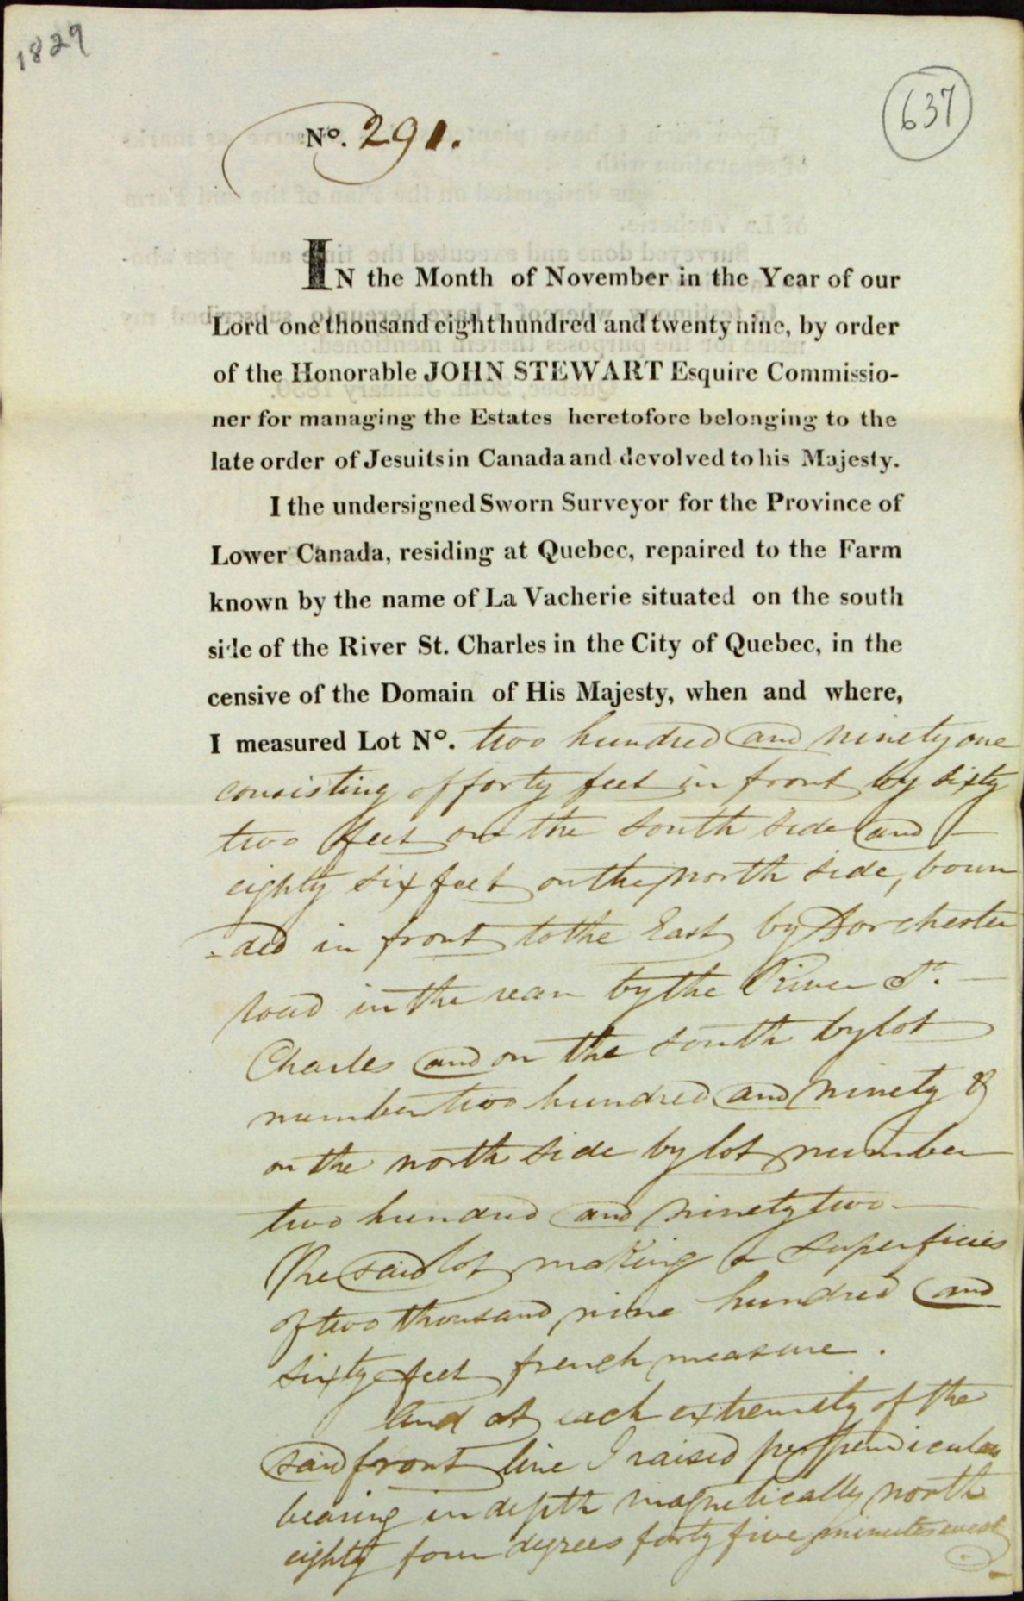 1829
637
No. 291.
IN the Month of November in the Year of our
Lord one thousand eight hundred and twenty nine, by order
of the Honorable JOHN STEWART Esquire Commissio-
ner for managing the Estates heretofore belonging to the
late order of Jesuits in Canada and devolved to his Majesty.
I the undersigned Sworn Surveyor for the Province of
Lower Canada, residing at Quebec, repaired to the Farm
known by the name of La Vacherie situated on the south
side of the River St. Charles in the City of Quebec, in the
censive of the Domain of His Majesty, when and where,
I measured Lot No. two hundred and ninety one
consisting of forty feet in front by sixty
two feet on the south side and –
eighty six feet on the north side, boun
-ded in front to the East by Dorchester
road in the rear by the River St. –
Charles and on the south by lot
number two hundred and ninety &
on the north side by lot number
two hundred and ninety two –
The said lot making a superficies
of two thousand nine hundred and
sixty feet french measure.
And at each extremity of the
said front line I raised perpendicular
bearing in depth magnetically north
eighty four degrees forty five minutes west